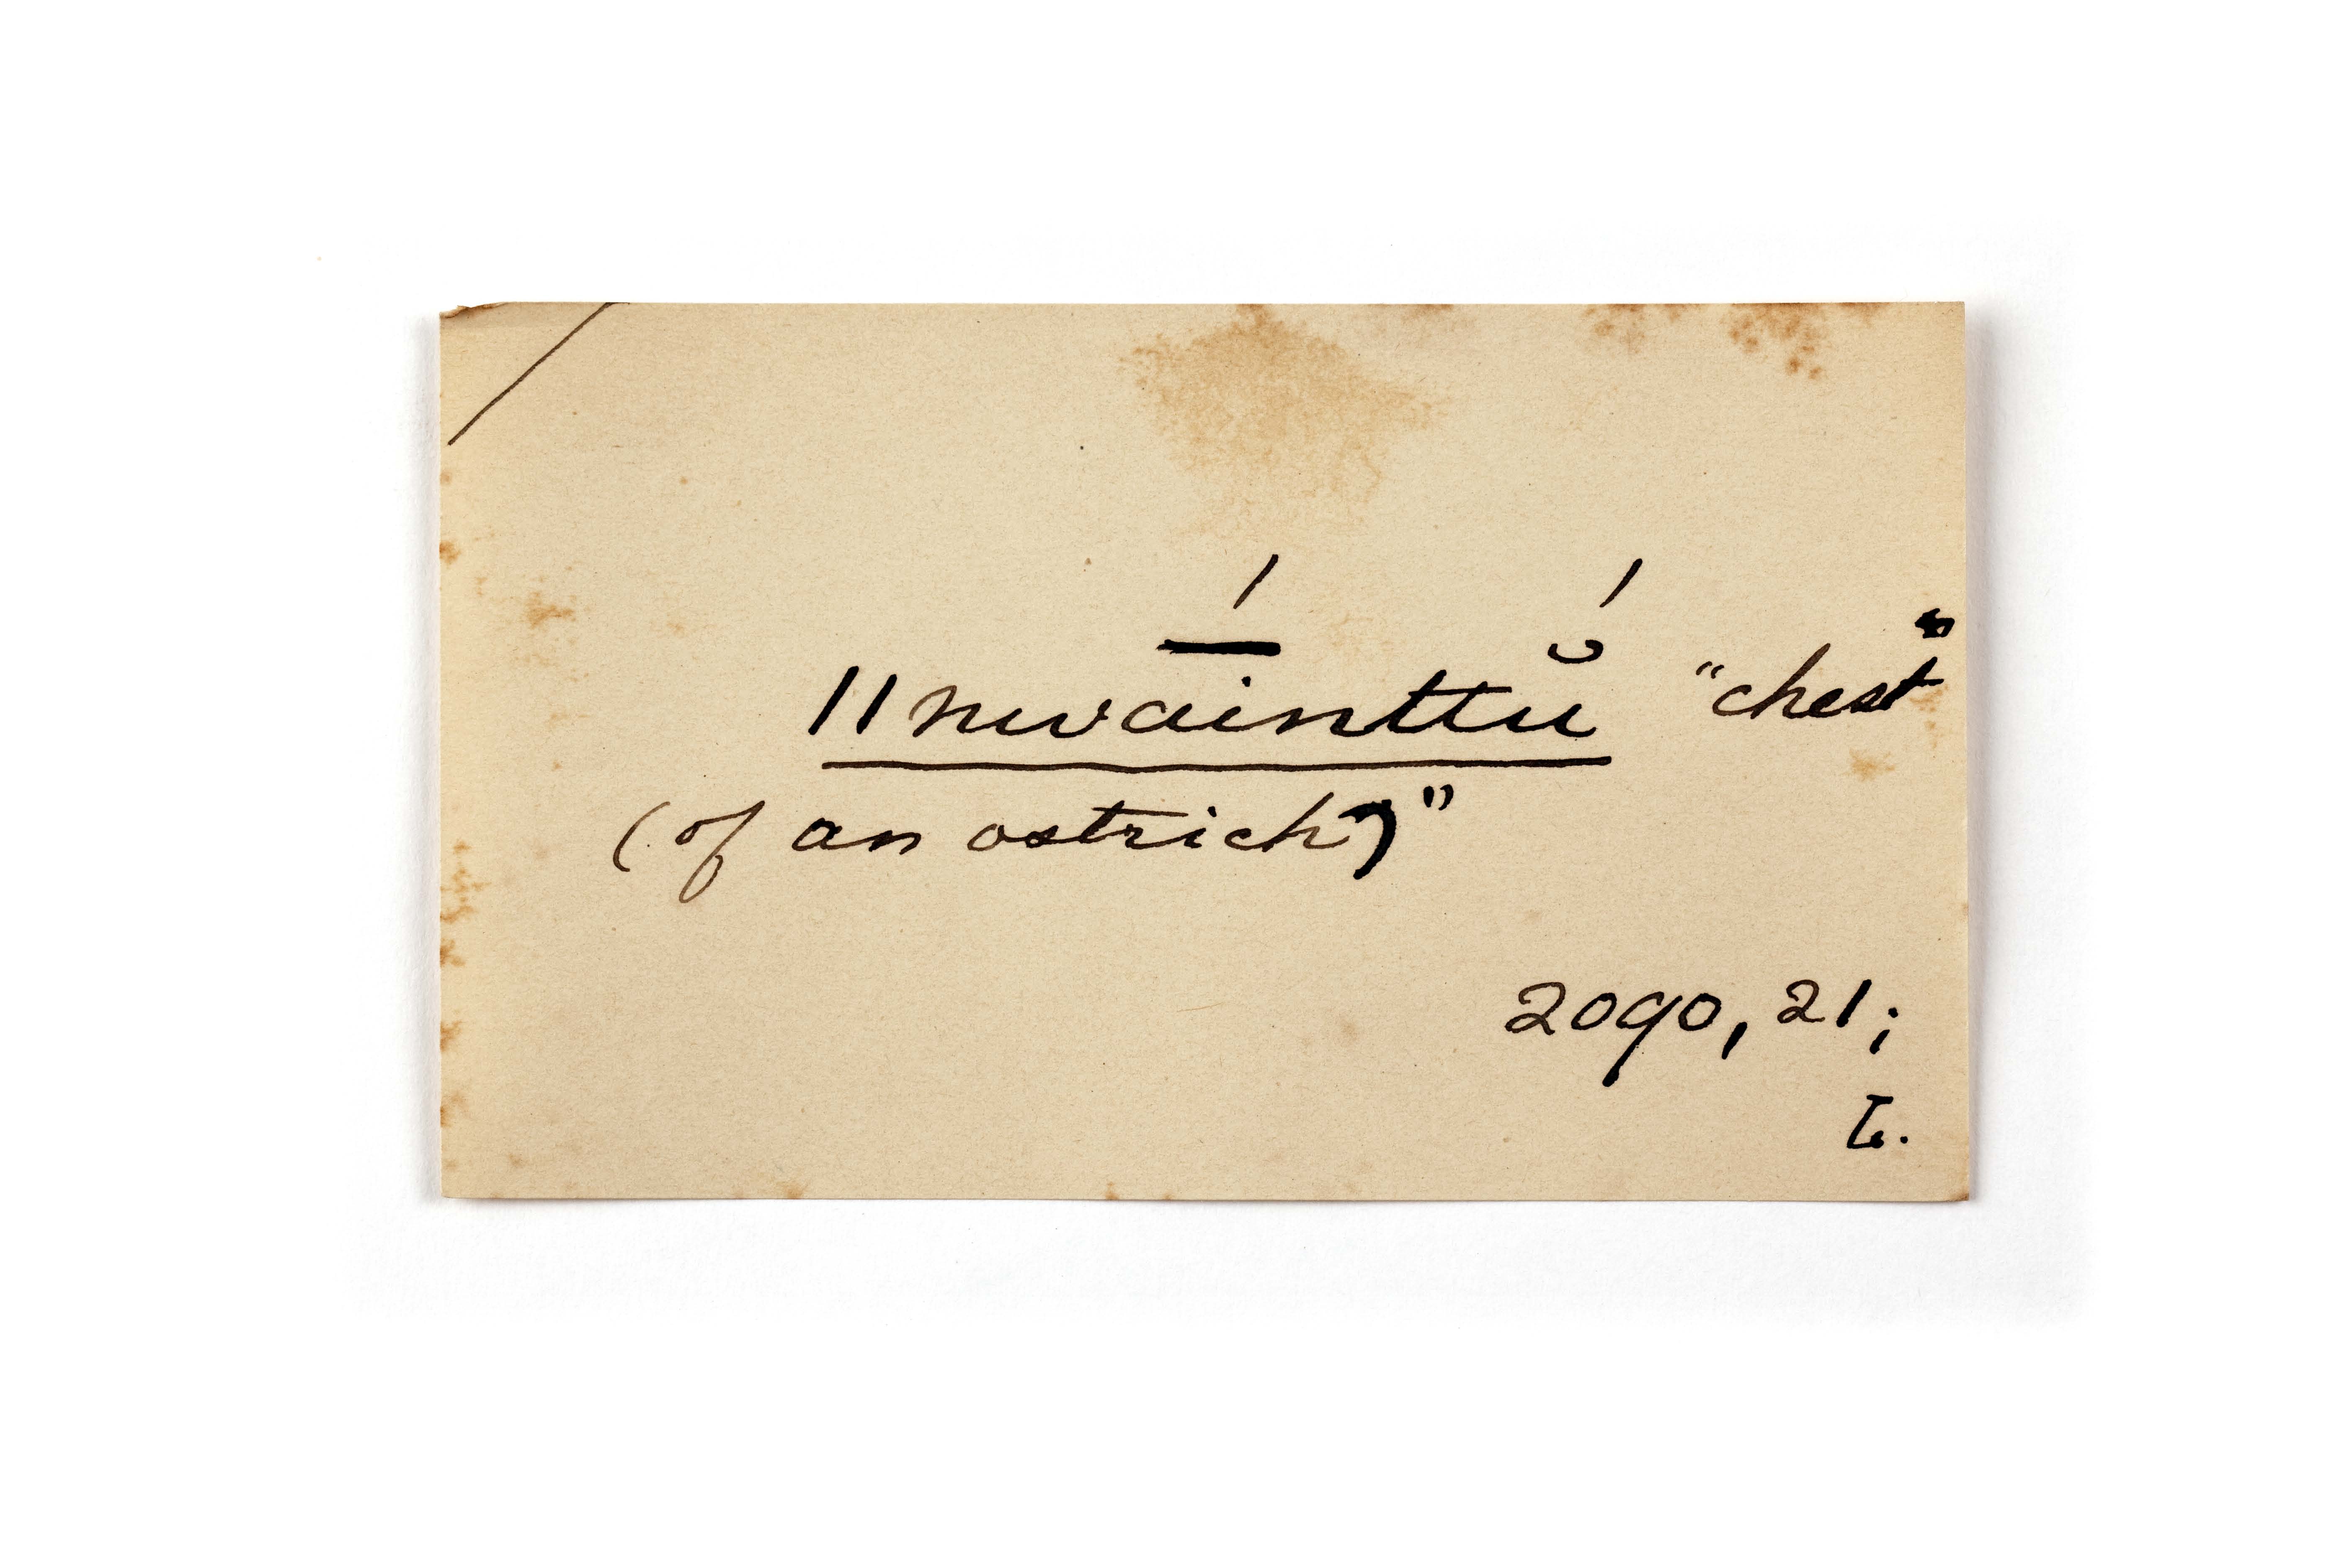 ǁnwā́inttŭ́ "chest"
(of an ostrich)"
2090, 21;
L.